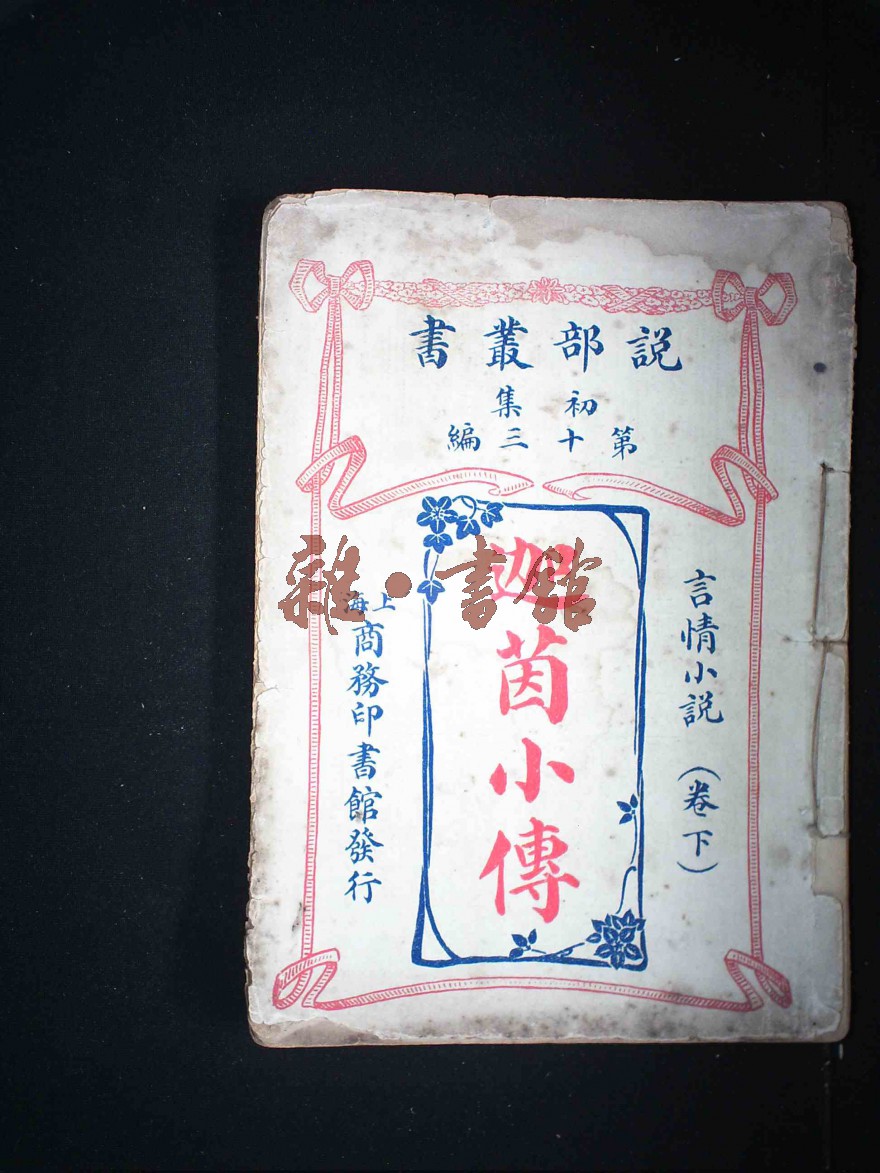 説部叢書
初集
第十三編
言情小説（卷下）
迦茵小傳
上海商務印書館發行
雜·書館